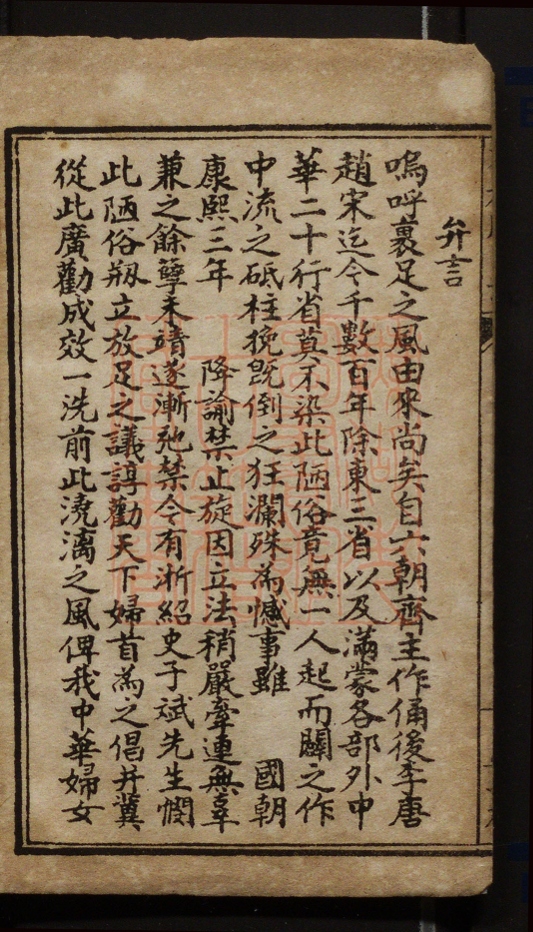 弁言
嗚呼裹足之風由來尚矣自六朝齊主作俑後李唐
趙宋迄今千數百年除東三省以及滿蒙各部外中
華二十行省莫不染此陋俗竟無一人起而闢之作
中流之砥柱挽既倒之狂瀾殊為憾事雖 國朝
康熙三年 降諭禁止旋因立法稍嚴牽連無辜
兼之餘孽未靖遂漸弛禁今有浙紹史子斌先生憫
此陋俗剏立放足之議諄勸天下婦首為之倡并冀
從此廣勸成效一洗前此澆漓之風俾我中華婦女